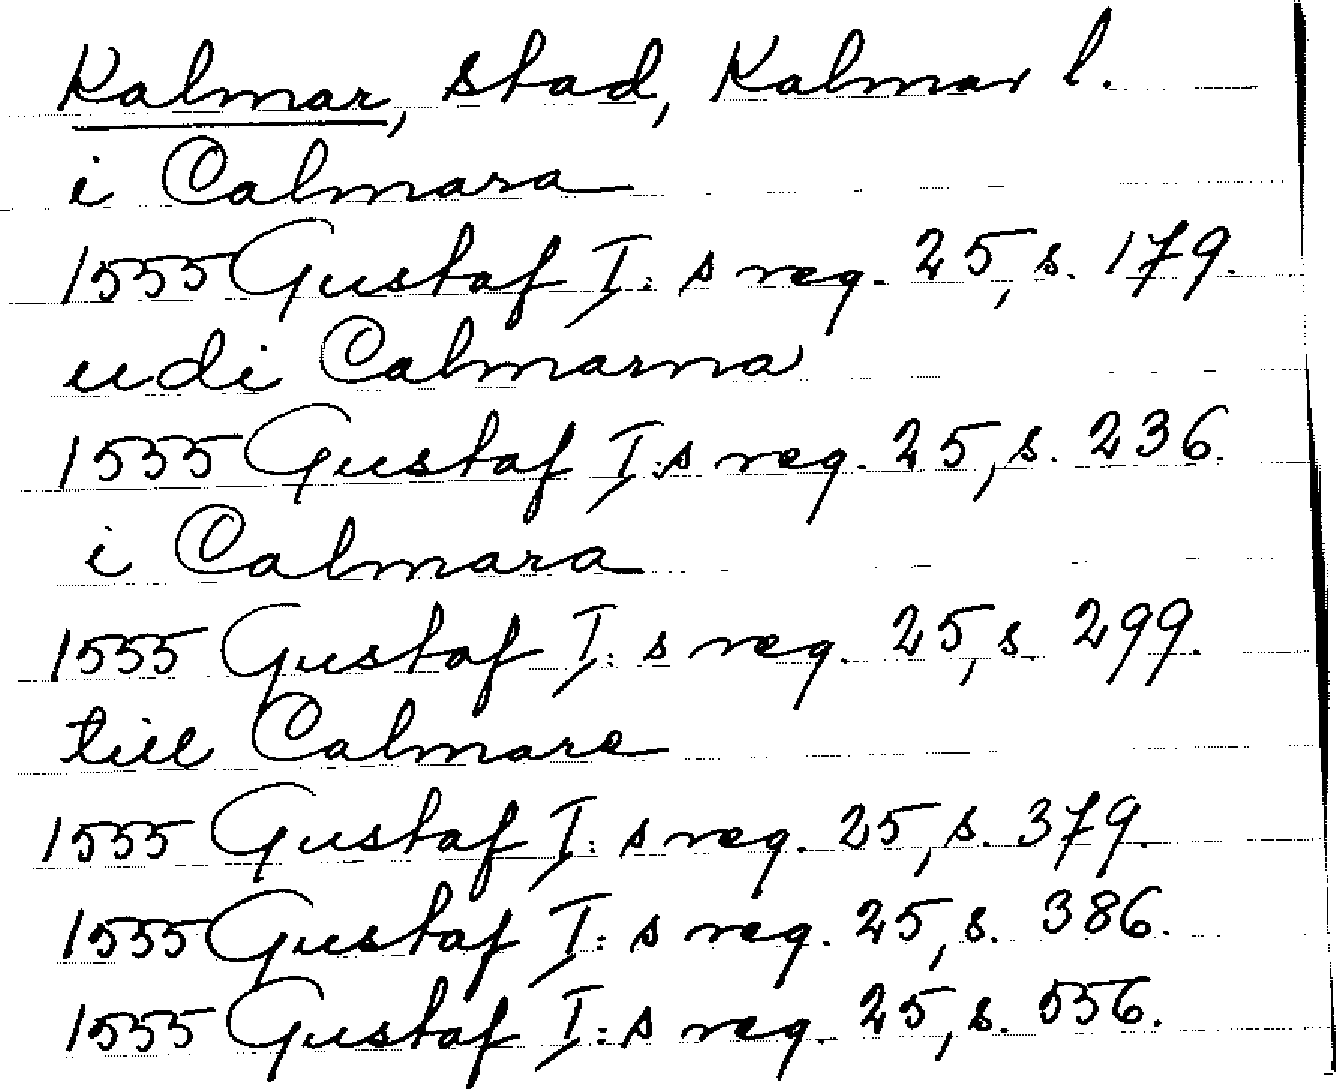 Kalmar, stad, Kalmar l.
i Calmara
1555 Gustaf I:s reg. 25, s. 179.
udi Calmarna
1555 Gustaf I:s reg. 25, s. 236.
i Calmara
1555 Gustaf I:s reg. 25, s. 299.
till Calmare
1555 Gustaf I:s reg. 25, s. 379.
1555 Gustaf I:s reg. 25, s. 386.
1555 Gustaf I:s reg. 25, s. 556.